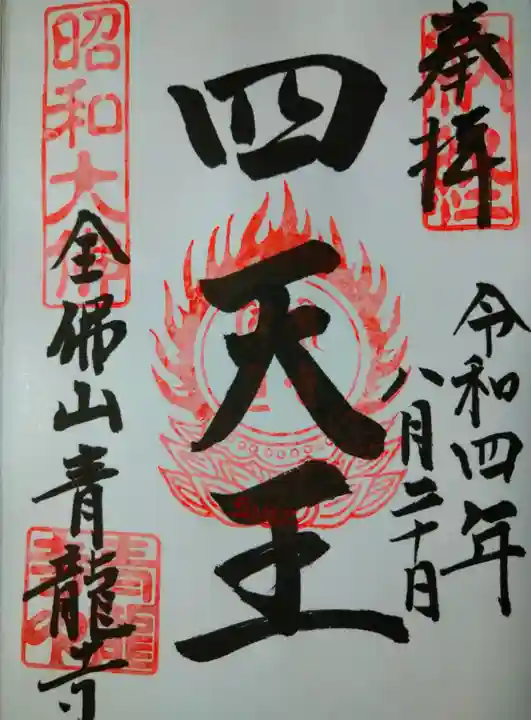 奉拝
令和四年
八月二十日
四天王
昭和大佛
全佛山青龍寺
青龍